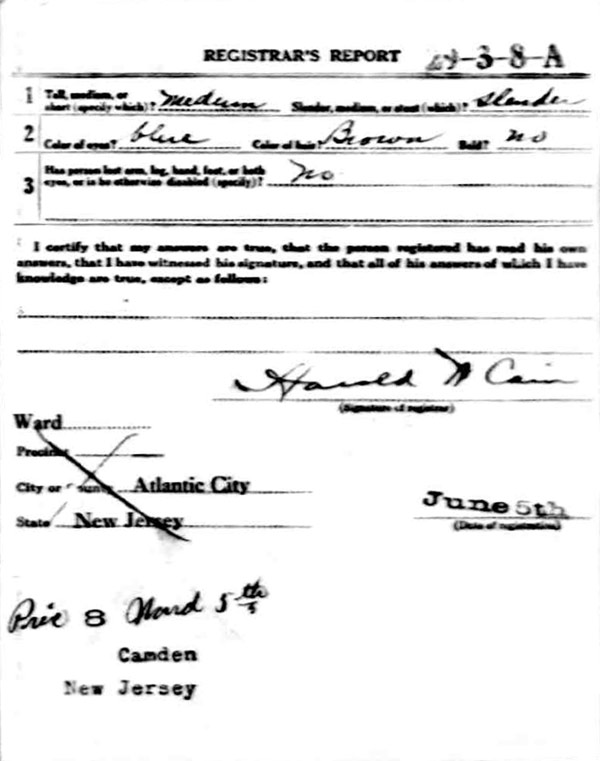 REGISTRAR'S REPORT 29-3-8-A
1 Tall, medium, or short (specify which)? Medium Slender, medium, or stout (which)? Slender
2 Color of eyes? blue Color of hair? Brown Bald? no
3 Has person lost arm, leg, hand, foot, or both
eyes, or is he otherwise disabled (specify)? no
I certify that my answers are true, that the person registered has read his own
answers, that I have witnessed his signature, and that all of his answers of which I have
knowledge are true, except as follows:
Harold W Cain
(Signature of registrar)
Ward
Precinct
City or County Atlantic City
State New Jersey
June 5th
(Date of registration)
Prec 8 Ward 5th
Camden
New Jersey